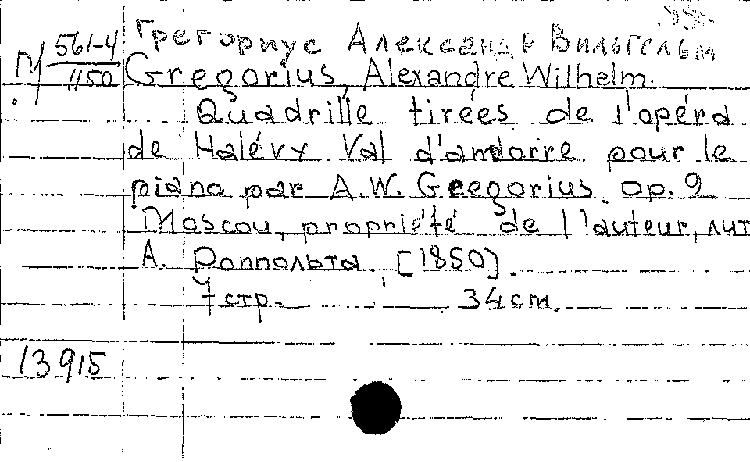 Грегориус Александр Вильгельм
П/ 561-4
1150
Gregorius, Alexandre Wilhelm.
Quadrille tirées de l'opéra
de Halévy Val d'andorre pour le
piano par A.W. Gregorius. op. 9
Moscou, propriété de l'auteur, лит
А. Роппольта. [1850].
7 стр. 34 cm.
13915